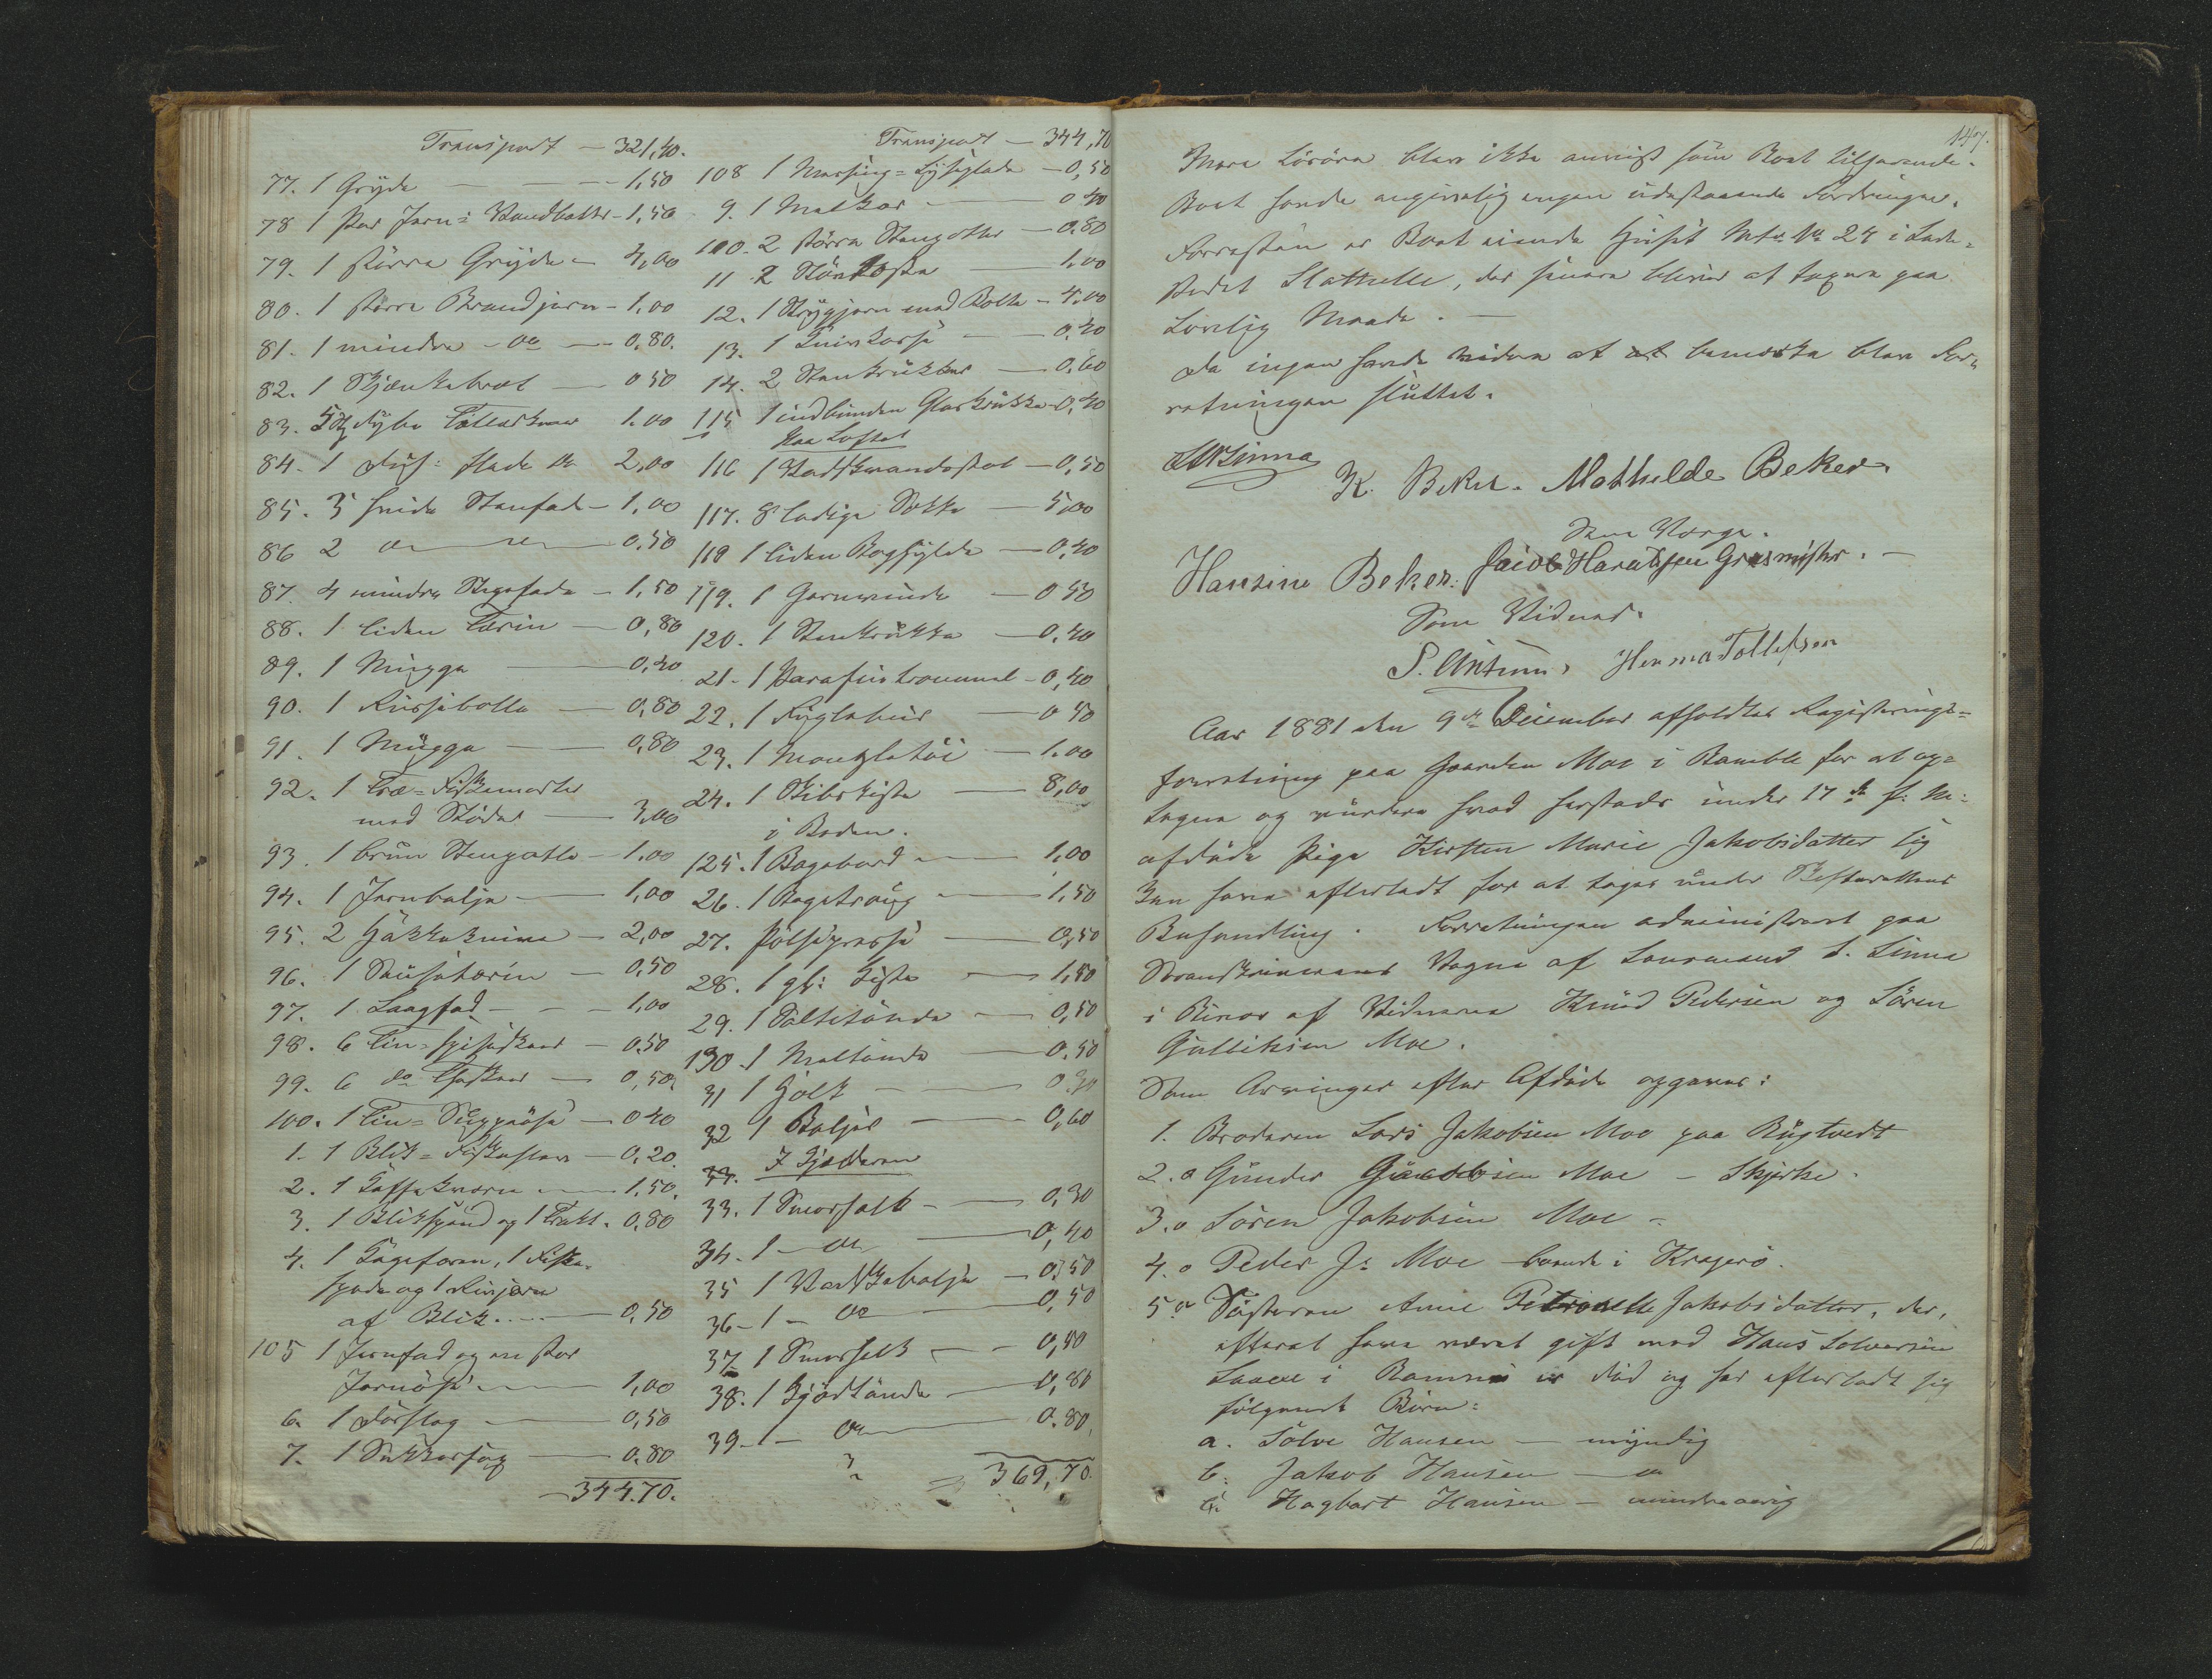 Transport — 321,40.
77. 1 Gryde — 1,50
78 1 Par Jern= Vandbøtter - 1,50
79. 1 større Gryde — 4,00
80. 1 større Brandjern - 1,00
81. 1 mindre - do — 0,80.
82. 1 Skjænkebræt — 0 50
83. dybe Tallerkener 1.00
84. 1 Dus: flade do 2,00
85. 3 hvide Stenfad - 1,00
86 2 do — 0,50
87. 4 mindre Stegefade - 1,50
88. 1 liden Terin — 0,80
89. 1 Mugge — 0,40
90. 1 Punsjebolle — 0,80
91. 1 Mugge — 0,80
92. 1 Træ=
med Støder — 3,00
93. 1 brun Stengotte - 1.00
94. 1 Jernbalje — 1,00
95. 2 Hakkeknive — 2,00
96. 1 Sauseterin — 0,50
97. 1 Langfad — 1,00
98. 6 Tin= Spiseskeer — 0,50
99. 6 do Theskeer — 0,50
100. 1 Tin= Suppeøse — 0 40
1. 1 Blik= — 0,20.
2. 1 Kaffekværn — 1,50.
3. 1 Blikspand og 1 Trakt. 0,80
4. 1 Kageform, 1 Fiske-
spade og 1 Rivjern
af Blik — 0,50
105 1 Jernfad og en stor
Jernøse — 1,00
6. 1 Dørslag — 0,50
7. 1 Sukkersax — 0.80
— 344.70.
Transport — 344,70
108 1 Messing= Lyseplade — 0,50
9. 1 Melkar — 0 40
100. 2 større Stengotter — 0.80
11 2 — 1.00
12. 1 Strygjern med Bolte — 4.00
13. 1 Knivkasse — 0,40
14. 2 Stenkrukker — 0.60
115 1 indbunden Glaskrukke - 0,40
Paa Loftet
116 1 Vadskevandsstol — 0,50
117. 8 ledige Sække — 5,00
118 1 liden Boghylde — 0,40
119. 1 Garnvinde — 0 50
120. 1 Stenkrukke — 0,40
21. 1 Parafintrommel - 0,40
22. 1 Fuglebuur — 0 50
23. 1 Mangletøi — 1.00
24. 1 Skibskiste — 8,00
i Boden.
125. 1 Bagebord — 1,00
26. 1 Bagetraug — 1,50
27. Pølsepresse — 0,50
28. 1 gl: Kiste — 1,50
29. 1 Saltetønde — 0,50
130. 1 Meltønde — 0.50
31 1 Holk — 0.30
32 1 Baljer — 0,60
I Kjælderen
33. 1 Smørholk — 0,30
34. 1 — do — 0,40
35 1 Vadskebalje — 0,50
36 - 1 - do — 0,50
37 1 Smørholk — 0,50
38. 1 Kjødtønde — 0,80
39 - 1 - do — 0.80.
369,70.
147.
Mere Løsøre blev ikke anvist som Boet tilhørende.
Boet havde angivelig ingen udestaaende Fordringer.
Forresten er Boet eiende Huset Mtr. No 24 i Lade-
stedet Stathelle, der senere bliver at taxere paa
Lovlig Maade. —
Da ingen havde videre at at bemærke blev For-
retningen sluttet.
Linna
K. Beker. Mathilde Beker
Som Værge.
Hansine Beker. Jacob Haraldsen Grasmyhr. —
Som Vidner.
S. Antuni, Herman Tollefsen
Aar 1881 den 9de December afholdtes Registrerings=
forretning paa Gaarden Moe i Bamble for at op=
tegne og vurdere hvad herstæds under 17de f. M:
afdøde Pige Kirsten Marie Jakobsdatter sig
kan have efterladt for at tages under Skifterettens
Behandling. Forretningen administreret paa
Sorenskriverens Vegne af Lensmand S. Linna
i Bivær af Vidnerne Knud Pedersen og Søren
Gulliksen Moe.
Som Arvinger efter Afdøde opgaves:
1. Broderen Lars Jakobsen Moe paa Rugtvedt
2. o Gunder Jacobsen Moe — Skjerke.
3. o Søren Jakobsen Moe —
4. o Peder J: Moe boende i Kragerø.
5. o Søsteren Anne Petronelle Jakobsdatter, der,
efterat have været gift med Hans Solversen
i er død og har efterladt sig
følgende Børn:
a. Sølve Hansen — myndig
b. Jakob Hansen — do
c. Hagbart Hansen — mindreaarig